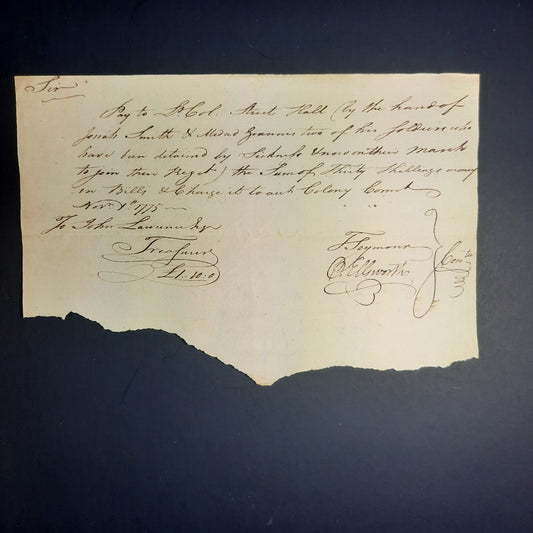 Sir
Pay to Lt Col. Street Hall (by the hand of
Josiah Smith & Medad two of his soldiers who
have been detained by Sickness & now on their march
to join their Regt) the Sum of Thirty Shillings money
in Bills & Charge it to acct Colony Connt
Novr 1st 1775
To John Lawrence Esqr
Treasurer
£1..10..0
T Seymour
O Ellsworth
Comtee